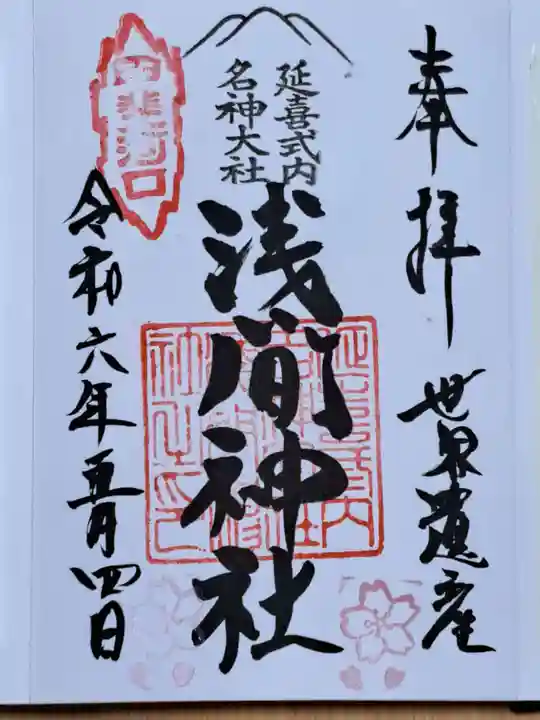 奉拝
世界遺産
延喜式内
名神大社
浅間神社
甲斐河口
令和六年五月四日